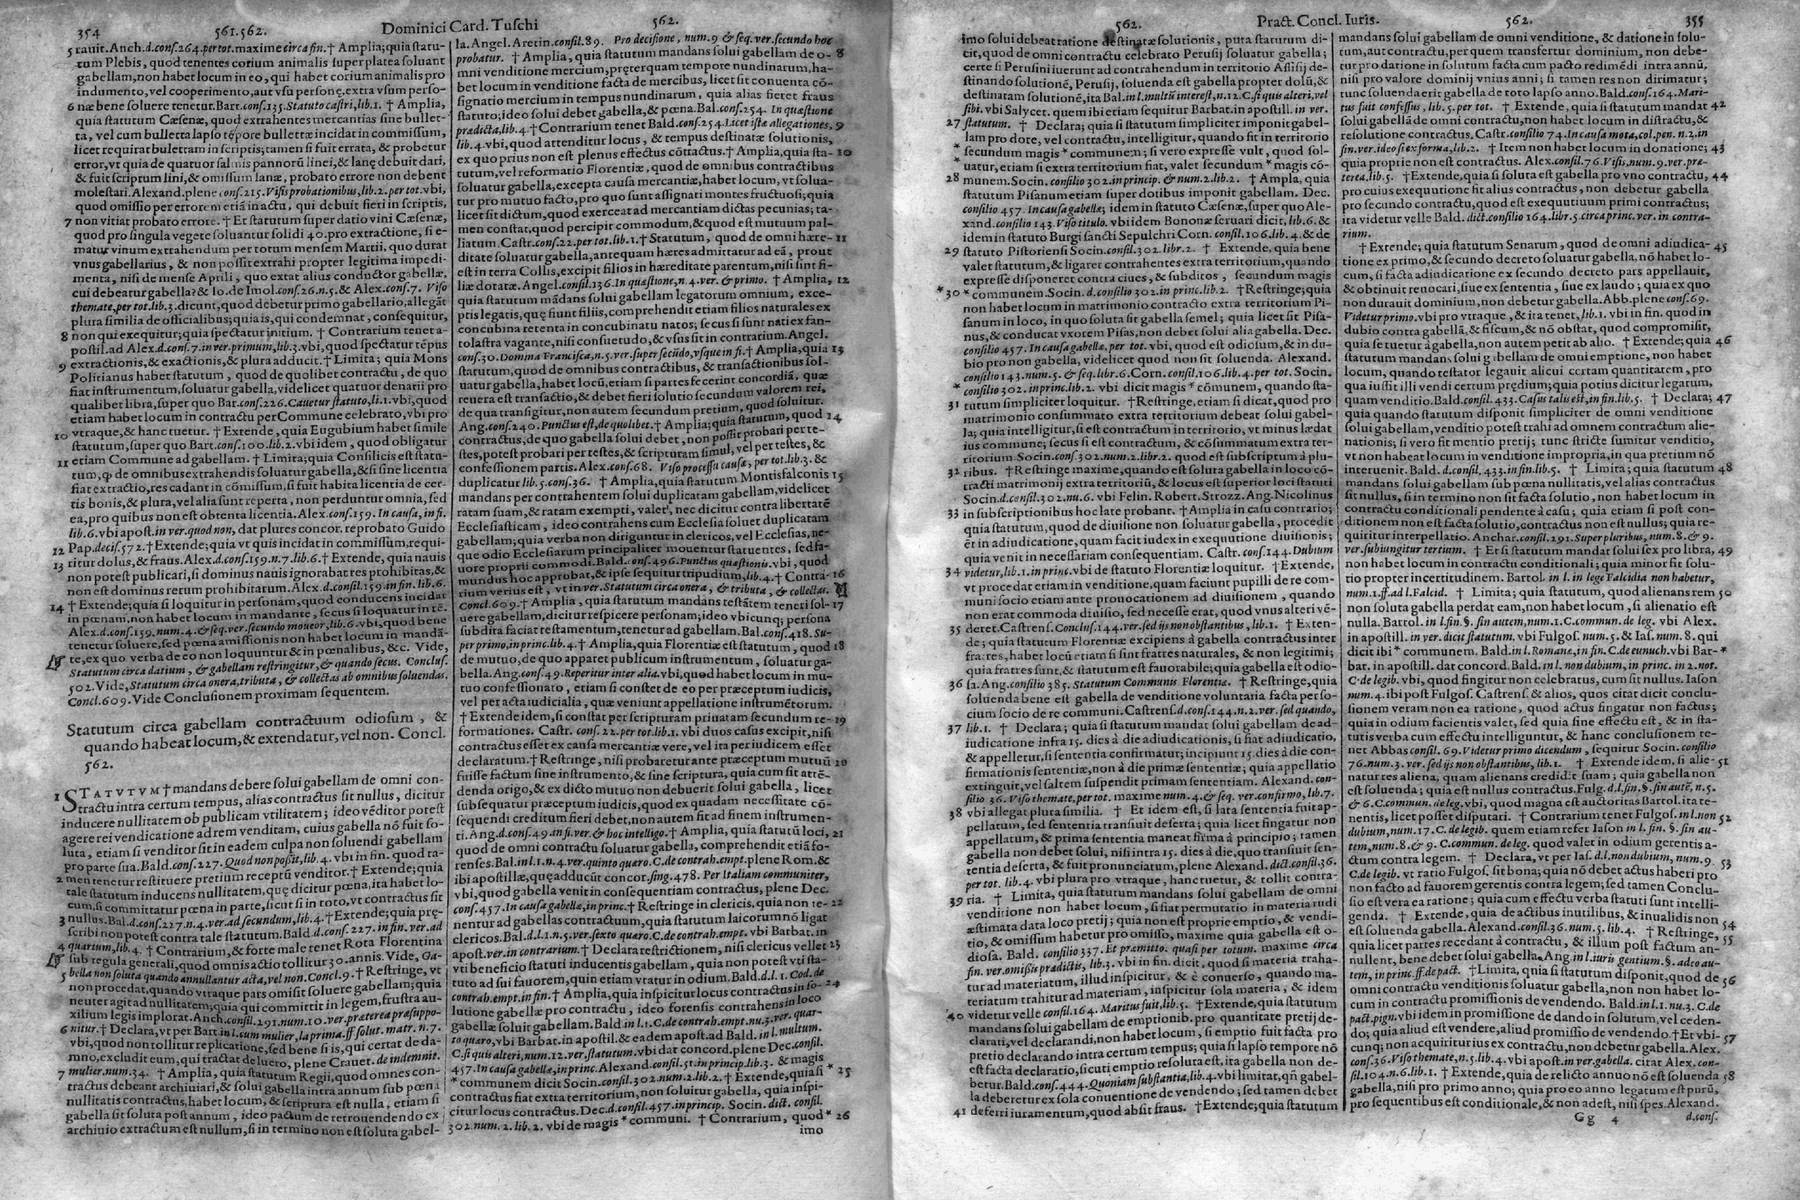 354 561.562. Dominici Card. Tuschi 562.
5 rauit. Anch. d. cons. 264. per tot. maxime circa fin. † Amplia; quia statu-
tum Plebis, quod tenentes corium animalis super platea soluant
gabellam, non habet locum in eo, qui habet corium animalis pro
indumento, vel cooperimento, aut vsu personę, extra vsum perso-
6 næ bene soluere tenetur. Bart. cons. 135. Statuto castri, lib. 1. † Amplia,
quia statutum Cæsenæ, quod extrahentes mercantias sine bullet-
ta, vel cum bulletta lapso tēpore bullettæ incidat in commissum,
licet requirat bulletam in scriptis; tamen si fuit errata, & probetur
error, vt quia de quatuor salmis pannorū linei, & lanę debuit dari,
& fuit scriptum lini, & omissum lanæ, probato errore non debent
molestari. Alexand. plene cons. 215. Visis probationibus, lib. 2. per tot. vbi,
quod omissio per errorem etiā in actu, qui debuit fieri in scriptis,
7 non vitiat probato errore. † Et statutum super datio vini Cæsenæ,
quod pro singula vegete soluantur solidi 40. pro extractione, si e-
matur vinum extrahendum per totum mensem Martii, quo durat
vnus gabellarius, & non possit extrahi propter legitima impedi-
menta, nisi de mense Aprili, quo extat alius conductor gabellæ,
cui debeatur gabella? & Io. de Imol. cons. 26. n. 5. & Alex. cons. 7. Viso
themate, per tot. lib. 3. dicunt, quod debetur primo gabellario, allegāt
plura similia de officialibus; quia is, qui condemnat, consequitur,
8 non qui exequitur; quia spectatur initium. † Contrarium tenet a-
postil. ad Alex. d. cons. 7. in ver. primum, lib. 3. vbi, quod spectatur tēpus
9 extractionis, & exactionis, & plura adducit. † Limita; quia Mons
Politianus habet statutum, quod de quolibet contractu, de quo
fiat instrumentum, soluatur gabella, videlicet quatuor denarii pro
qualibet libra, super quo Bar. cons. 226. Cauetur statuto, li. 1. vbi, quod
etiam habet locum in contractu per Commune celebrato, vbi pro
10 vtraque, & hanc tuetur. † Extende, quia Eugubium habet simile
statutum, super quo Bart. cons. 100. lib. 2. vbi idem, quod obligatur
11 etiam Commune ad gabellam. † Limita; quia Consilicis est statu-
tum, q; de omnibus extrahendis soluatur gabella, & si sine licentia
fiat extractio, res cadant in cōmissum, si fuit habita licentia de cer-
tis bonis, & plura, vel alia sunt reperta, non perduntur omnia, sed
ea, pro quibus non est obtenta licentia. Alex. cons. 159. In causa, in fi.
lib. 6. vbi apost. in ver. quod non, dat plures concor. reprobato Guido
12 Pap. decis. 572. † Extende; quia vt quis incidat in commissum, requi-
13 ritur dolus, & fraus. Alex. d. cons. 159. n. 7. lib. 6. † Extende, quia nauis
non potest publicari, si dominus nauis ignorabat res prohibitas, &
non est dominus rerum prohibitarum. Alex. d. consil. 159. in fin. lib. 6.
14 † Extende; quia si loquitur in personam, quod conducens incidat
in pœnam, non habet locum in mandante, secus si loquatur in rē.
Alex. d. cons. 159. num. 4. & seq. ver. secundo moueor, lib. 6. vbi, quod bene
tenetur soluere, sed pœna amissionis non habet locum in mandā-
te, ex quo verba de eo non loquuntur & in pœnalibus, &c. Vide,
Statutum circa datium, & gabellam restringitur, & quando secus. Conclus.
502. Vide, Statutum circa onera, tributa, & collectas ab omnibus soluendas.
Concl. 609. Vide Conclusionem proximam sequentem.
Statutum circa gabellam contractuum odiosum, &
quando habeat locum, & extendatur, vel non. Concl.
562.
1 STATVTVM † mandans debere solui gabellam de omni con-
tractu intra certum tempus, alias contractus sit nullus, dicitur
inducere nullitatem ob publicam vtilitatem; ideo vēditor potest
agere rei vendicatione ad rem venditam, cuius gabella nō fuit so-
luta, etiam si venditor sit in eadem culpa non soluendi gabellam
pro parte sua. Bald. cons. 227. Quod non possit, lib. 4. vbi in fin. quod ta-
2 men tenetur restituere pretium receptū venditor. † Extende; quia
tale statutum inducens nullitatem, quę dicitur pœna, ita habet lo-
cum, si committatur pœna in parte, sicut si in toto, vt contractus sit
3 nullus. Bal. d. cons. 227. n. 4. ver. ad secundum, lib. 4. † Extende; quia prę-
scribi non potest contra tale statutum. Bald. d. cons. 227. in fin. ver. ad
4 quartum, lib. 4. † Contrarium, & forte male tenet Rota Florentina
sub regula generali, quod omnis actio tollitur 30. annis. Vide, Ga-
5 bella non soluta quando annullantur acta, vel non. Concl. 9. † Restringe, vt
non procedat, quando vtraque pars omisit soluere gabellam; quia
neuter agit ad nullitatem; quia qui committit in legem, frustra au-
xilium legis implorat. Anch. consil. 291. num. 10. ver. præterea præsuppo-
6 nitur. † Declara, vt per Bart. in l. cum mulier, la prima. ff. solut. matr. n. 7.
vbi, quod non tollitur replicatione, sed bene si is, qui certat de da-
mno, excludit eum, qui tractat de lucro, plene Crauet. de indemnit.
7 mulier. num. 34. † Amplia, quia statutum Regii, quod omnes con-
tractus debeant archiuiari, & solui gabella intra annum sub pœna
nullitatis contractus, habet locum, & scriptura est nulla, etiam si
gabella sit soluta post annum, ideo pactum de retrouendendo ex
archiuio extractum est nullum, si in termino non est soluta gabel-
la. Angel. Aretin. consil. 89. Pro decisione, num. 9. & seq. ver. secundo hoc
probatur. † Amplia, quia statutum mandans solui gabellam de o- 8
mni venditione mercium, præterquam tempore nundinarum, ha-
bet locum in venditione facta de mercibus, licet sit conuenta cō-
signatio mercium in tempus nundinarum, quia alias fieret fraus
statuto; ideo solui debet gabella, & pœna. Bal. cons. 254. In quæstione
prædicta, lib. 4. † Contrarium tenet Bald. cons. 254. Licet istæ allegationes, 9
lib. 4. vbi, quod attenditur locus, & tempus destinatæ solutionis,
ex quo prius non est plenus effectus cōtractus. † Amplia, quia sta- 10
tutum, vel reformatio Florentiæ, quod de omnibus contractibus
soluatur gabella, excepta causa mercantiæ, habet locum, vt solua-
tur pro mutuo facto, pro quo sunt assignati montes fructuosi; quia
licet sit dictum, quod exerceat ad mercantiam dictas pecunias; ta-
men constat, quod percipit commodum, & quod est mutuum pal-
liatum. Castr. cons. 22. per tot. lib. 1. † Statutum, quod de omni hære- 11
ditate soluatur gabella, antequam hæres admittatur ad eā, prout
est in terra Collis, excipit filios in hæreditate parentum, nisi sint fi-
liæ dotatæ. Angel. cons. 136. In quæstione, n. 4. ver. & primo. † Amplia, 12
quia statutum mādans solui gabellam legatorum omnium, exce-
ptis legatis, quę fiunt filiis, comprehendit etiam filios naturales ex
concubina retenta in concubinatu natos; secus si sunt nati ex fan-
tolastra vagante, nisi consuetudo, & vsus sit in contrarium. Angel.
cons. 30. Domna Francisca, n. 5. ver. super secūdo, vsque in fi. † Amplia; quia 13
statutum, quod de omnibus contractibus, & transactionibus sol-
uatur gabella, habet locū, etiam si partes fecerint concordiā, quæ
reuera est transactio, & debet fieri solutio secundum valorem rei,
de qua transigitur, non autem secundum pretium, quod soluitur.
Ang. cons. 240. Punctus est, de quolibet. † Amplia; quia statutum, quod 14
contractus, de quo gabella solui debet, non possit probari per te-
stes, potest probari per testes, & scripturam simul, vel per testes, &
confessionem partis. Alex. cons. 68. Viso processu causæ, per tot. lib. 3. &
duplicatur lib. 5. cons. 36. † Amplia, quia statutum Montisfalconis 15
mandans per contrahentem solui duplicatam gabellam, videlicet
ratam suam, & ratam exempti, valet, nec dicitur contra libertatē
Ecclesiasticam, ideo contrahens cum Ecclesia soluet duplicatam
gabellam; quia verba non diriguntur in clericos, vel Ecclesias, ne-
que odio Ecclesiarum principaliter mouentur statuentes, sed fa-
uore proprii commodi. Bald. cons. 496. Punctus quæstionis. vbi, quod
mundus hoc approbat, & ipse sequitur tripudium, lib. 4. † Contra- 16
rium verius est, vt in ver. Statutum circa onera, & tributa, & collectas.
Concl. 609. † Amplia, quia statutum mandans testātem teneri sol- 17
uere gabellam, dicitur respicere personam; ideo vbicunq; persona
subdita faciat testamentum, tenetur ad gabellam. Bal. cons. 418. Su-
per primo, in princ. lib. 4. † Amplia, quia Florentiæ est statutum, quod 18
de mutuo, de quo apparet publicum instrumentum, soluatur ga-
bella. Ang. cons. 49. Reperitur inter alia. vbi, quod habet locum in mu-
tuo confessionato, etiam si constet de eo per præceptum iudicis,
vel per acta iudicialia, quæ veniunt appellatione instrumētorum.
† Extende idem, si constat per scripturam priuatam secundum re- 19
formationes. Castr. cons. 22. per tot. lib. 1. vbi duos casus excipit, nisi
contractus esset ex causa mercantiæ vere, vel ita per iudicem esset
declaratum. † Restringe, nisi probaretur ante præceptum mutuū 20
fuisse factum sine instrumento, & sine scriptura, quia cum sit attē-
denda origo, & ex dicto mutuo non debuerit solui gabella, licet
subsequatur præceptum iudicis, quod ex quadam necessitate cō-
sequendi creditum fieri debet, non autem fit ad finem instrumen-
ti. Ang. d. cons. 49. in fi. ver. & hoc intelligo. † Amplia, quia statutū loci, 21
quod de omni contractu soluatur gabella, comprehendit etiā fo-
renses. Bal. in l. 1. n. 4. ver. quinto quæro. C. de contrah. empt. plene Rom. &
ibi apostillæ, quę adducūt concor. sing. 478. Per Italiam communiter,
vbi, quod gabella venit in consequentiam contractus, plene Dec.
cons. 457. In causa gabellæ, in princ. † Restringe in clericis, quia non te- 22
nentur ad gabellas contractuum, quia statutum laicorum nō ligat
clericos. Bal. d. l. 1. n. 5. ver. sexto quæro. C. de contrah. empt. vbi Barbat. in
apost. ver. in contrarium. † Declara restrictionem, nisi clericus vellet 23
vti beneficio statuti inducentis gabellam, quia non potest vti sta-
tuto ad sui fauorem, quin etiam vtatur in odium. Bald. d. l. 1. Cod. de
contrah. empt. in fin. † Amplia, quia inspicitur locus contractus in so- 24
lutione gabellæ pro contractu, ideo forensis contrahens in loco
gabellæ soluit gabellam. Bald. in l. 1. C. de contrah. empt. nu. 3. ver. quar-
to quæro, vbi Barbat. in apostil. & eadem apost. ad Bald. in l. multum.
C. si quis alteri, num. 12. ver. statutum. vbi dat concord. plene Dec. consil.
457. In causa gabellæ, in princ. Alexand. consil. 51. in princip. lib. 3. & magis
* communem dicit Socin. consil. 302. num. 2. lib. 2. † Extende, quia si * 25
contractus fiat extra territorium, non soluitur gabella, quia inspi-
citur locus contractus. Dec. d. consil. 457. in princip. Socin. dict. consil.
302. num. 2. lib. 2. vbi de magis * communi. † Contrarium, quod * 26
imo
562. Pract. Concl. Iuris. 562. 355
imo solui debeat ratione destinatæ solutionis, puta statutum di-
cit, quod de omni contractu celebrato Perusii soluatur gabella;
certe si Perusini iuerunt ad contrahendum in territorio Assisij de-
stinando solutionē, Perusij, soluenda est gabella propter dolū, &
destinatam solutionē, ita Bal. in l. multū interest, n. 12. C. si quis alteri, vel
sibi. vbi Salycet. quem ibi etiam sequitur Barbat. in apostill. in ver.
27 statutum. † Declara; quia si statutum simpliciter imponit gabel-
lam pro dote, vel contractu, intelligitur, quando fit in territorio
* secundum magis * communem; si vero expresse vult, quod sol-
* uatur, etiam si extra territorium fiat, valet secundum * magis cō-
28 munem. Socin. consilio 302. in princip. & num. 2. lib. 2. † Ampla, quia
statutum Pisanum etiam super dotibus imponit gabellam. Dec.
consilio 457. In causa gabellæ; idem in statuto Cæsenæ, super quo Ale-
xand. consilio 143. Viso titulo. vbi idem Bononæ seruari dicit, lib. 6. &
idem in statuto Burgi sancti Sepulchri Corn. consil. 106. lib. 4. & de
29 statuto Pistoriensi Socin. consil. 302. libr. 2. † Extende, quia bene
valet statutum, & ligaret contrahentes extra territorium, quando
expresse disponeret contra ciues, & subditos, secundum magis
*30* communem. Socin. d. consilio 302. in princ. lib. 2. † Restringe; quia
non habet locum in matrimonio contracto extra territorium Pi-
sanum in loco, in quo soluta sit gabella semel; quia licet sit Pisa-
nus, & conducat vxorem Pisas, non debet solui alia gabella. Dec.
consilio 457. In causa gabellæ, per tot. vbi, quod est odiosum, & in du-
bio pro non gabella, videlicet quod non sit soluenda. Alexand.
consilio 143. num. 5. & seq. libr. 6. Corn. consil. 106. lib. 4. per tot. Socin.
* consilio 302. in princ. lib. 2. vbi dicit magis * cōmunem, quando sta-
31 tutum simpliciter loquitur. † Restringe, etiam si dicat, quod pro
matrimonio consummato extra territorium debeat solui gabel-
la; quia intelligitur, si est contractum in territorio, vt minus lædat
ius commune; secus si est contractum, & cōsummatum extra ter-
ritorium. Socin. cons. 302. num. 2. libr. 2. quod est subscriptum à plu-
32 ribus. † Restringe maxime, quando est soluta gabella in loco cō-
tracti matrimonij extra territoriū, & locus est superior loci statuti
Socin. d. consil. 302. nu. 6. vbi Felin. Robert. Strozz. Ang. Nicolinus
33 in subscriptionibus hoc late probant. † Amplia in casu contrario;
quia statutum, quod de diuisione non soluatur gabella, procedit
ēt in adiudicatione, quam facit iudex in exequutione diuisionis;
quia venit in necessariam consequentiam. Castr. cons. 144. Dubium
34 videtur, lib. 1. in princ. vbi de statuto Florentiæ loquitur. † Extende,
vt procedat etiam in venditione, quam faciunt pupilli de re com-
muni socio etiam ante prouocationem ad diuisionem, quando
non erat commoda diuisio, sed necesse erat, quod vnus alteri vē-
35 deret. Castrens. Concluf. 144. ver. sed ijs non obstantibus, lib. 1. † Exten-
de; quia statutum Florentiæ excipiens à gabella contractus inter
fratres, habet locū etiam si sunt fratres naturales, & non legitimi,
quia fratres sunt, & statutum est fauorabile; quia gabella est odio-
36 sa. Ang. consilio 385. Statutum Communis Florentiæ. † Restringe, quia
soluenda bene est gabella de venditione voluntaria facta per so-
cium socio de re communi. Castrens. d. cons. 144. n. 2. ver. sed quando,
37 lib. 1. † Declara; quia si statutum mandat solui gabellam de ad-
iudicatione infra 15. dies à die adiudicationis, si fiat adiudicatio,
& appelletur, si sententia confirmatur; incipiunt 15. dies à die con-
firmationis sententiæ, non à die primæ sententiæ; quia appellatio
extinguit, vel saltem suspendit primam sententiam. Alexand. con-
silio 36. Viso themate, per tot. maxime num. 4. & seq. ver. confirmo, lib. 7.
38 vbi allegat plura similia. † Et idem est, si lata sententia fuit ap-
pellatum, sed sententia transiuit deserta; quia licet fingatur non
appellatum, & prima sententia maneat firma à principio; tamen
gabella non debet solui, nisi intra 15. dies à die, quo transiuit sen-
tentia deserta, & fuit pronunciatum, plene Alexand. dict. consil. 36.
per tot. lib. 4. vbi plura pro vtraque, hanc tuetur, & tollit contra-
39 ria. † Limita, quia statutum mandans solui gabellam de omni
venditione non habet locum, si fiat permutatio in materia rudi
æstimata data loco pretij; quia non est proprie emptio, & vendi-
tio, & omissum habetur pro omisso, maxime quia gabella est o-
diosa. Bald. consilio 337. Et præmitto. quasi per totum. maxime circa
fin. ver. omissis prædictis, lib. 3. vbi in fin. dicit, quod si materia traha-
tur ad materiatum, illud inspicitur, & è conuerso, quando ma-
teriatum trahitur ad materiam, inspicitur sola materia, & idem
40 videtur velle consil. 164. Maritus fuit, lib. 5. † Extende, quia statutum
mandans solui gabellam de emptionib. pro quantitate pretij de-
clarati, vel declarandi, non habet locum, si emptio fuit facta pro
pretio declarando intra certum tempus; quia si lapso tempore nō
est facta declaratio, sicuti emptio resoluta est, ita gabella non de-
betur. Bald. cons. 444. Quoniam substantia, lib. 4. vbi limitat, qñ gabel-
la deberetur ex sola conuentione de vendendo; sed tamen debet
41 deferri iuramentum, quod absit fraus. † Extende; quia statutum
mandans solui gabellam de omni venditione, & datione in solu-
tum, aut contractu, per quem transfertur dominium, non debe-
tur pro datione in solutum facta cum pacto redimēdi intra annū,
nisi pro valore dominij vnius anni; si tamen res non dirimatur;
tunc soluenda erit gabella de toto lapso anno. Bald. cons. 164. Mari-
tus fuit confessus, lib. 5. per tot. † Extende, quia si statutum mandat 42
solui gabellā de omni contractu, non habet locum in distractu, &
resolutione contractus. Castr. consilio 74. In causa mota, col. pen. n. 2. in
fin. ver. ideo si ex forma, lib. 2. † Item non habet locum in donatione; 43
quia proprie non est contractus. Alex. consil. 76. Visis, num. 9. ver. præ-
terea, lib. 5. † Extende, quia si soluta est gabella pro vno contractu, 44
pro cuius exequutione fit alius contractus, non debetur gabella
pro secundo contractu, quod est exequutiuum primi contractus;
ita videtur velle Bald. dict. consilio 164. libr. 5. circa princ. ver. in contra-
rium.
† Extende; quia statutum Senarum, quod de omni adiudica- 45
tione ex primo, & secundo decreto soluatur gabella, nō habet lo-
cum, si facta adiudicatione ex secundo decreto pars appellauit,
& obtinuit reuocari, siue ex sententia, siue ex laudo; quia ex quo
non durauit dominium, non debetur gabella. Abb. plene cons. 69.
Videtur primo. vbi pro vtraque, & ita tenet, lib. 1. vbi in fin. quod in
dubio contra gabellā, & fiscum, & nō obstat, quod compromisit,
quia se tuetur à gabella, non autem petit ab alio. † Extende; quia 46
statutum mandans solui gabellam de omni emptione, non habet
locum, quando testator legauit alicui certam quantitatem, pro
qua iussit illi vendi certum prędium; quia potius dicitur legatum,
quam venditio. Bald. consil. 433. Casus talis est, in fin. lib. 5. † Declara; 47
quia quando statutum disponit simpliciter de omni venditione
soluat gabellam, venditio potest trahi ad omnem contractum alie-
nationis; si vero fit mentio pretij; tunc stricte sumitur venditio,
vt non habeat locum in venditione impropria, in qua pretium nō
interuenit. Bald. d. consil. 433. in fin. lib. 5. † Limita; quia statutum 48
mandans solui gabellam sub pœna nullitatis, vel alias contractus
sit nullus, si in termino non sit facta solutio, non habet locum in
contractu conditionali pendente à casu; quia etiam si post con-
ditionem non est facta solutio, contractus non est nullus; quia re-
quiritur interpellatio. Anchar. consil. 291. Super pluribus, num. 8. & 9.
ver. subiungitur tertium. † Et si statutum mandat solui sex pro libra, 49
non habet locum in contractu conditionali; quia minor fit solu-
tio propter incertitudinem. Bartol. in l. in lege Falcidia non habetur,
num. 1. ff. ad l. Falcid. † Limita; quia statutum, quod alienans rem 50
non soluta gabella perdat eam, non habet locum, si alienatio est
nulla. Bartol. in l. fin. §. sin autem, num. 1. C. commun. de leg. vbi Alex.
in apostill. in ver. dicit statutum. vbi Fulgos. num. 5. & Ias. num. 8. qui
dicit ibi * communem. Bald. in l. Romanæ, in fin. C. de eunuch. vbi Bar- *
bat. in apostill. dat concord. Bald. in l. non dubium, in princ. in 2. not.
C. de legib. vbi, quod fingitur non celebratus, cum sit nullus. Iason
num. 4. ibi post Fulgos. Castrens. & alios, quos citat dicit conclu-
sionem veram non ea ratione, quod actus fingatur non factus;
quia in odium facientis valet, sed quia sine effectu est, & in sta-
tutis verba cum effectu intelliguntur, & hanc conclusionem te-
net Abbas consil. 69. Videtur primo dicendum, sequitur Socin. consilio
76. num. 3. ver. sed ijs non obstantibus, lib. 1. † Extende idem, si alie- 51
natur res aliena, quam alienans credidit suam; quia gabella non
est soluenda; quia est nullus contractus. Fulg. d. l. fin. §. sin autē, n. 5.
& 6. C. commun. de leg. vbi, quod magna est auctoritas Bartol. ita te-
nentis, licet posset disputari. † Contrarium tenet Fulgos. in l. non 52
dubium, num. 17. C. de legib. quem etiam refert Iason in l. fin. §. sin au-
tem, num. 8. & 9. C. commun. de leg. quod valet in odium gerentis a-
ctum contra legem. † Declara, vt per Ias. d. l. non dubium, num. 9. 53
C. de legib. vt ratio Fulgos. sit bona; quia nō debet actus haberi pro
non facto ad fauorem gerentis contra legem; sed tamen Conclu-
sio est vera ea ratione; quia cum effectu verba statuti sunt intelli-
genda. † Extende, quia de actibus inutilibus, & inualidis non 54
est soluenda gabella. Alexand. consil. 36. num. 5. lib. 4. † Restringe, 55
quia licet partes recedant à contractu, & illum post factum an-
nullent, bene debet solui gabella. Ang. in l. iuris gentium. §. adeo au-
tem, in princ. ff. de pact. † Limita, quia si statutum disponit, quod de 56
omni contractu venditionis soluatur gabella, non non habet lo-
cum in contractu promissionis de vendendo. Bald. in l. 1. nu. 3. C. de
pact. pign. vbi idem in promissione de dando in solutum, vel ceden-
do; quia aliud est vendere, aliud promissio de vendendo. † Et vbi- 57
cunq; non acquiritur ius ex contractu, non debetur gabella. Alex.
cons. 36. Viso themate, n. 5. lib. 4. vbi apost. in ver. gabella. citat Alex. con-
sil. 104. n. 6. lib. 1. † Extende, quia de relicto annuo nō est soluenda 58
gabella, nisi pro primo anno; quia pro eo anno legatum est purū,
pro sequentibus est conditionale, & non adest, nisi spes. Alexand.
Gg 4 d. cons.